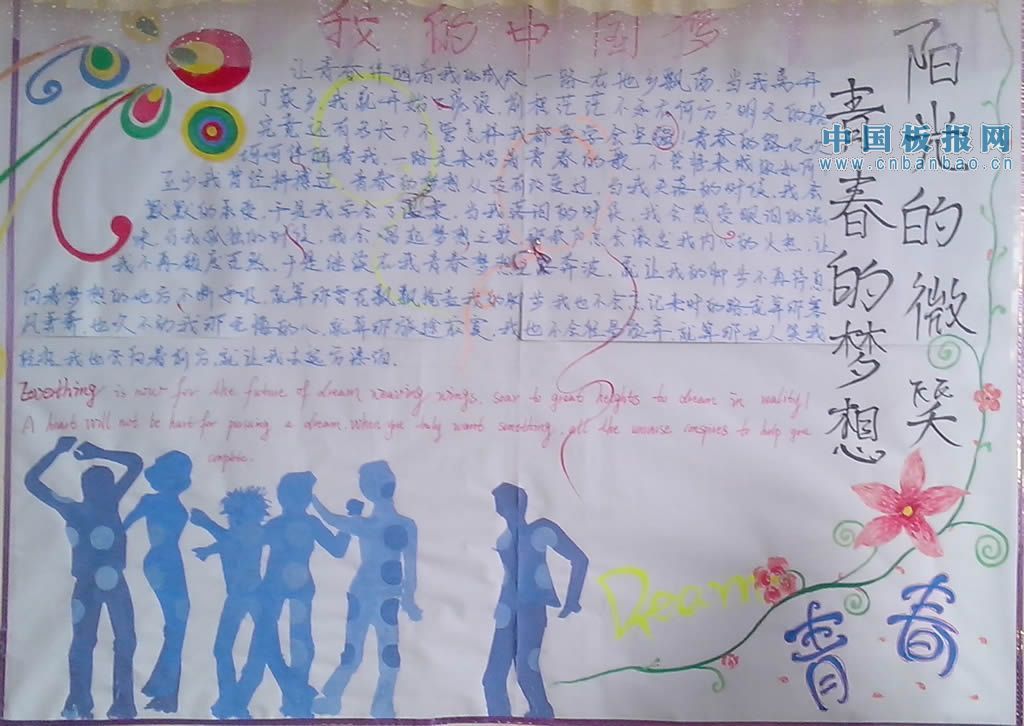 我的中国梦
让青春伴随着我的成长一路在他乡飘荡,当我离开
了家乡,我就开始了流浪,前程茫茫不知去何方?明天的路
究竟还有多长?不管怎样我都要学会坚强!青春的路
伴随着我,一路走来唱着青春的歌,不管将来成败如何
至少我曾经拼搏过,青春的梦想从没有改变过,当我失落的时候,我会
默默的承受,于是我学会了,当我的时候,我会感受的滋
味,当我孤独的时候,我会唱起梦想之歌,总会激起我内心的火热,让
我不再,于是继续在我青春梦想奔波,就让我的脚步不再停息
向着梦想的地方不断,就算那雪花飘飘掩盖我的脚步我也不会忘记来时的路就算那寒
风,也吹不动我那的心,就算那旅途,我也不会轻易放弃,就算那世人笑我
轻狂,我也会向着前方,就让我
Everything is now for the future of dream weaving wings, soar to great heights to dream in reality!
A heart will not be hurt for pursing a dream, when you truly want something, all the universe conspires to help you
complete.
阳光的微笑
青春的梦想
中国板报网
www.cnbanbao.cn
Dream
青春